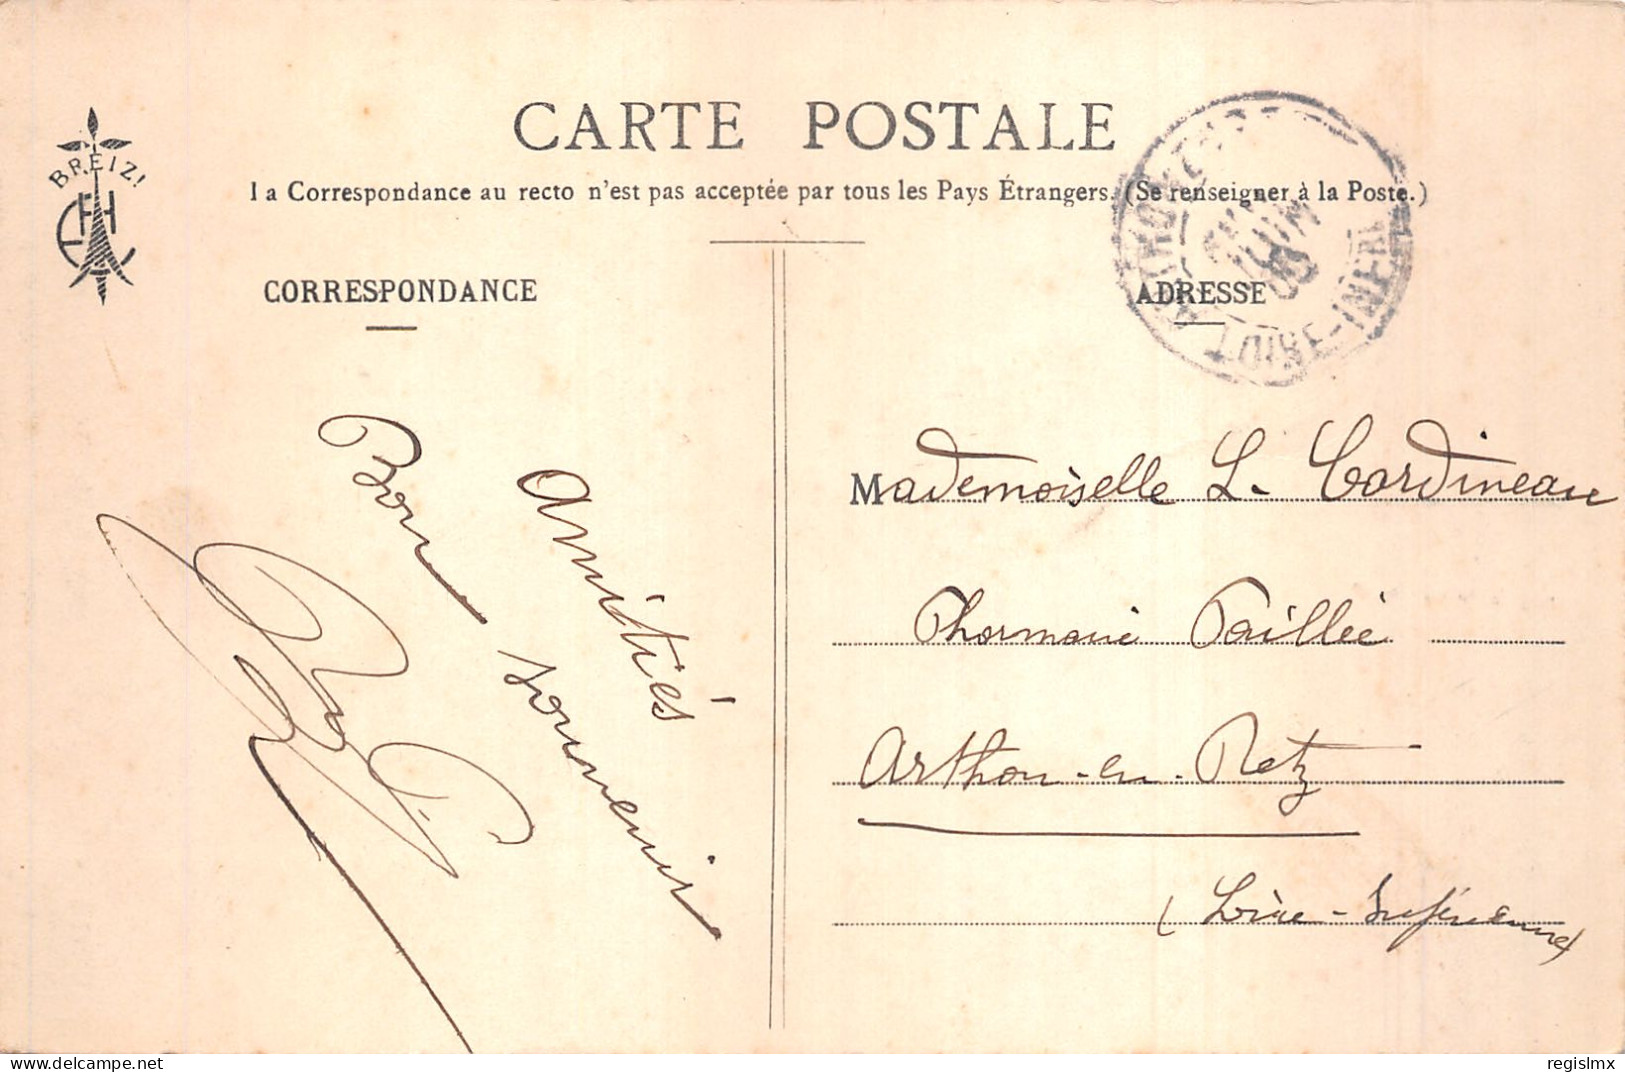 CARTE POSTALE
BREIZ!
EH
La Correspondance au recto n'est pas acceptée par tous les Pays Étrangers. (Se renseigner à la Poste.)
JUIN
LOIRE-INFRE
CORRESPONDANCE
ADRESSE
Amitiés
Bon souvenir
Mademoiselle L. Cardineau
Pharmacie Taillée
Arthon-en-Retz
(Loire-Inférieure)
www.delcampe.net
regislmx